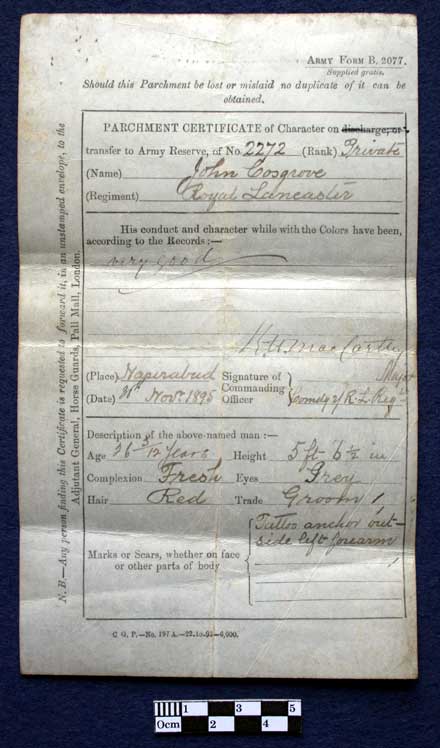 ARMY FORM B. 2077.
Supplied gratis.
Should this Parchment be lost or mislaid no duplicate of it can be
obtained.
PARCHMENT CERTIFICATE of Character on discharge, or
transfer to Army Reserve, of No. 2272 (Rank) Private
(Name) John Cosgrove
(Regiment) Royal Lancaster
His conduct and character while with the Colors have been,
according to the Records :—
very good
MacCarthy
Major
(Place) Signature of
Commanding
Officer
(Date) Novr. 1895 Comdg 2/ R. L. Reg
Description of the above-named man :—
Age 26 3/12 Years Height 5 ft 6 ½ in
Complexion Fresh Eyes Grey
Hair Red Trade Groom
Marks or Scars, whether on face
or other parts of body
Tattoo anchor out-
side left forearm
C G. P.—No. 197 A.—22-10-93—6,000.
N.B.—Any person finding this Certificate is requested to forward it, in an unstamped envelope, to the
Adjutant General, Horse Guards, Pall Mall, London.
1 3 5
0cm 2 4